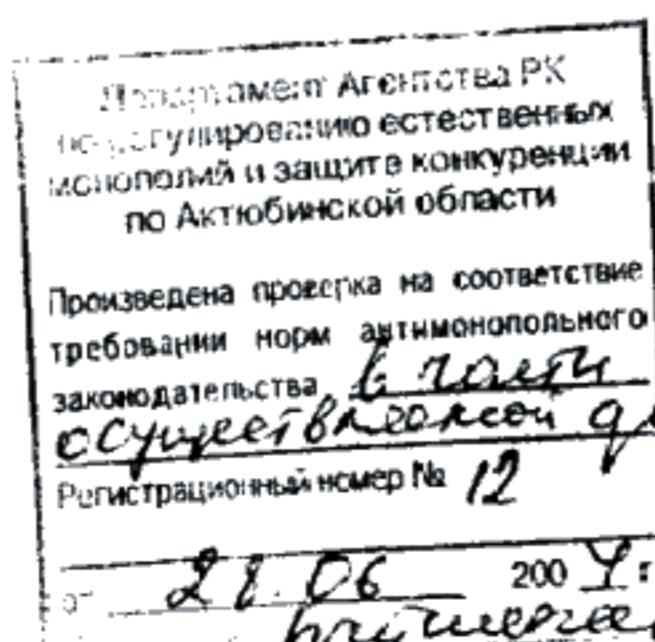 Департамент Агентства РК
по регулированию естественных
монополий и защите конкуренции
по Актюбинской области
Произведена проверка на соответствие
требовании норм антимонопольного
законодательства в части
осуществляемой
Регистрационный номер № 12
от 28.06 2004 г